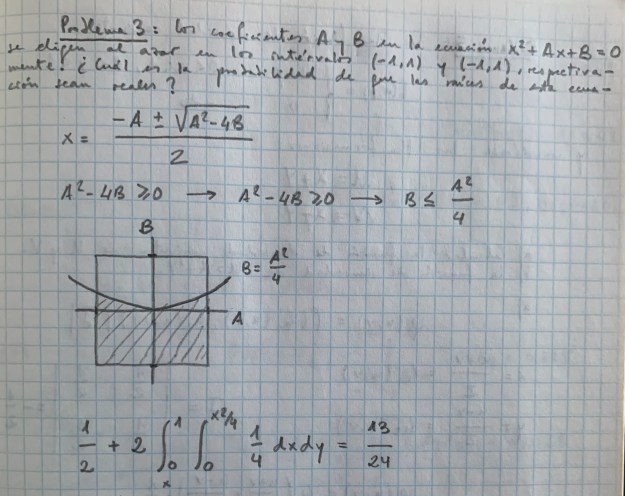 Problema 3: Los coeficientes A y B en la ecuación x² + Ax + B = 0
se eligen al azar en los intérvalos (-1,1) y (-1,1), respectiva-
mente. ¿Cuál es la probabilidad de que las raíces de esta ecua-
ción sean reales?
x = (-A ± √(A² - 4B)) / 2
A² - 4B ⩾ 0 → A² - 4B ⩾ 0 → B ≤ A²/4
B
B = A²/4
A
1/2 + 2 ∫₀¹ ∫₀^(x²/4) 1/4 dxdy = 13/24
x